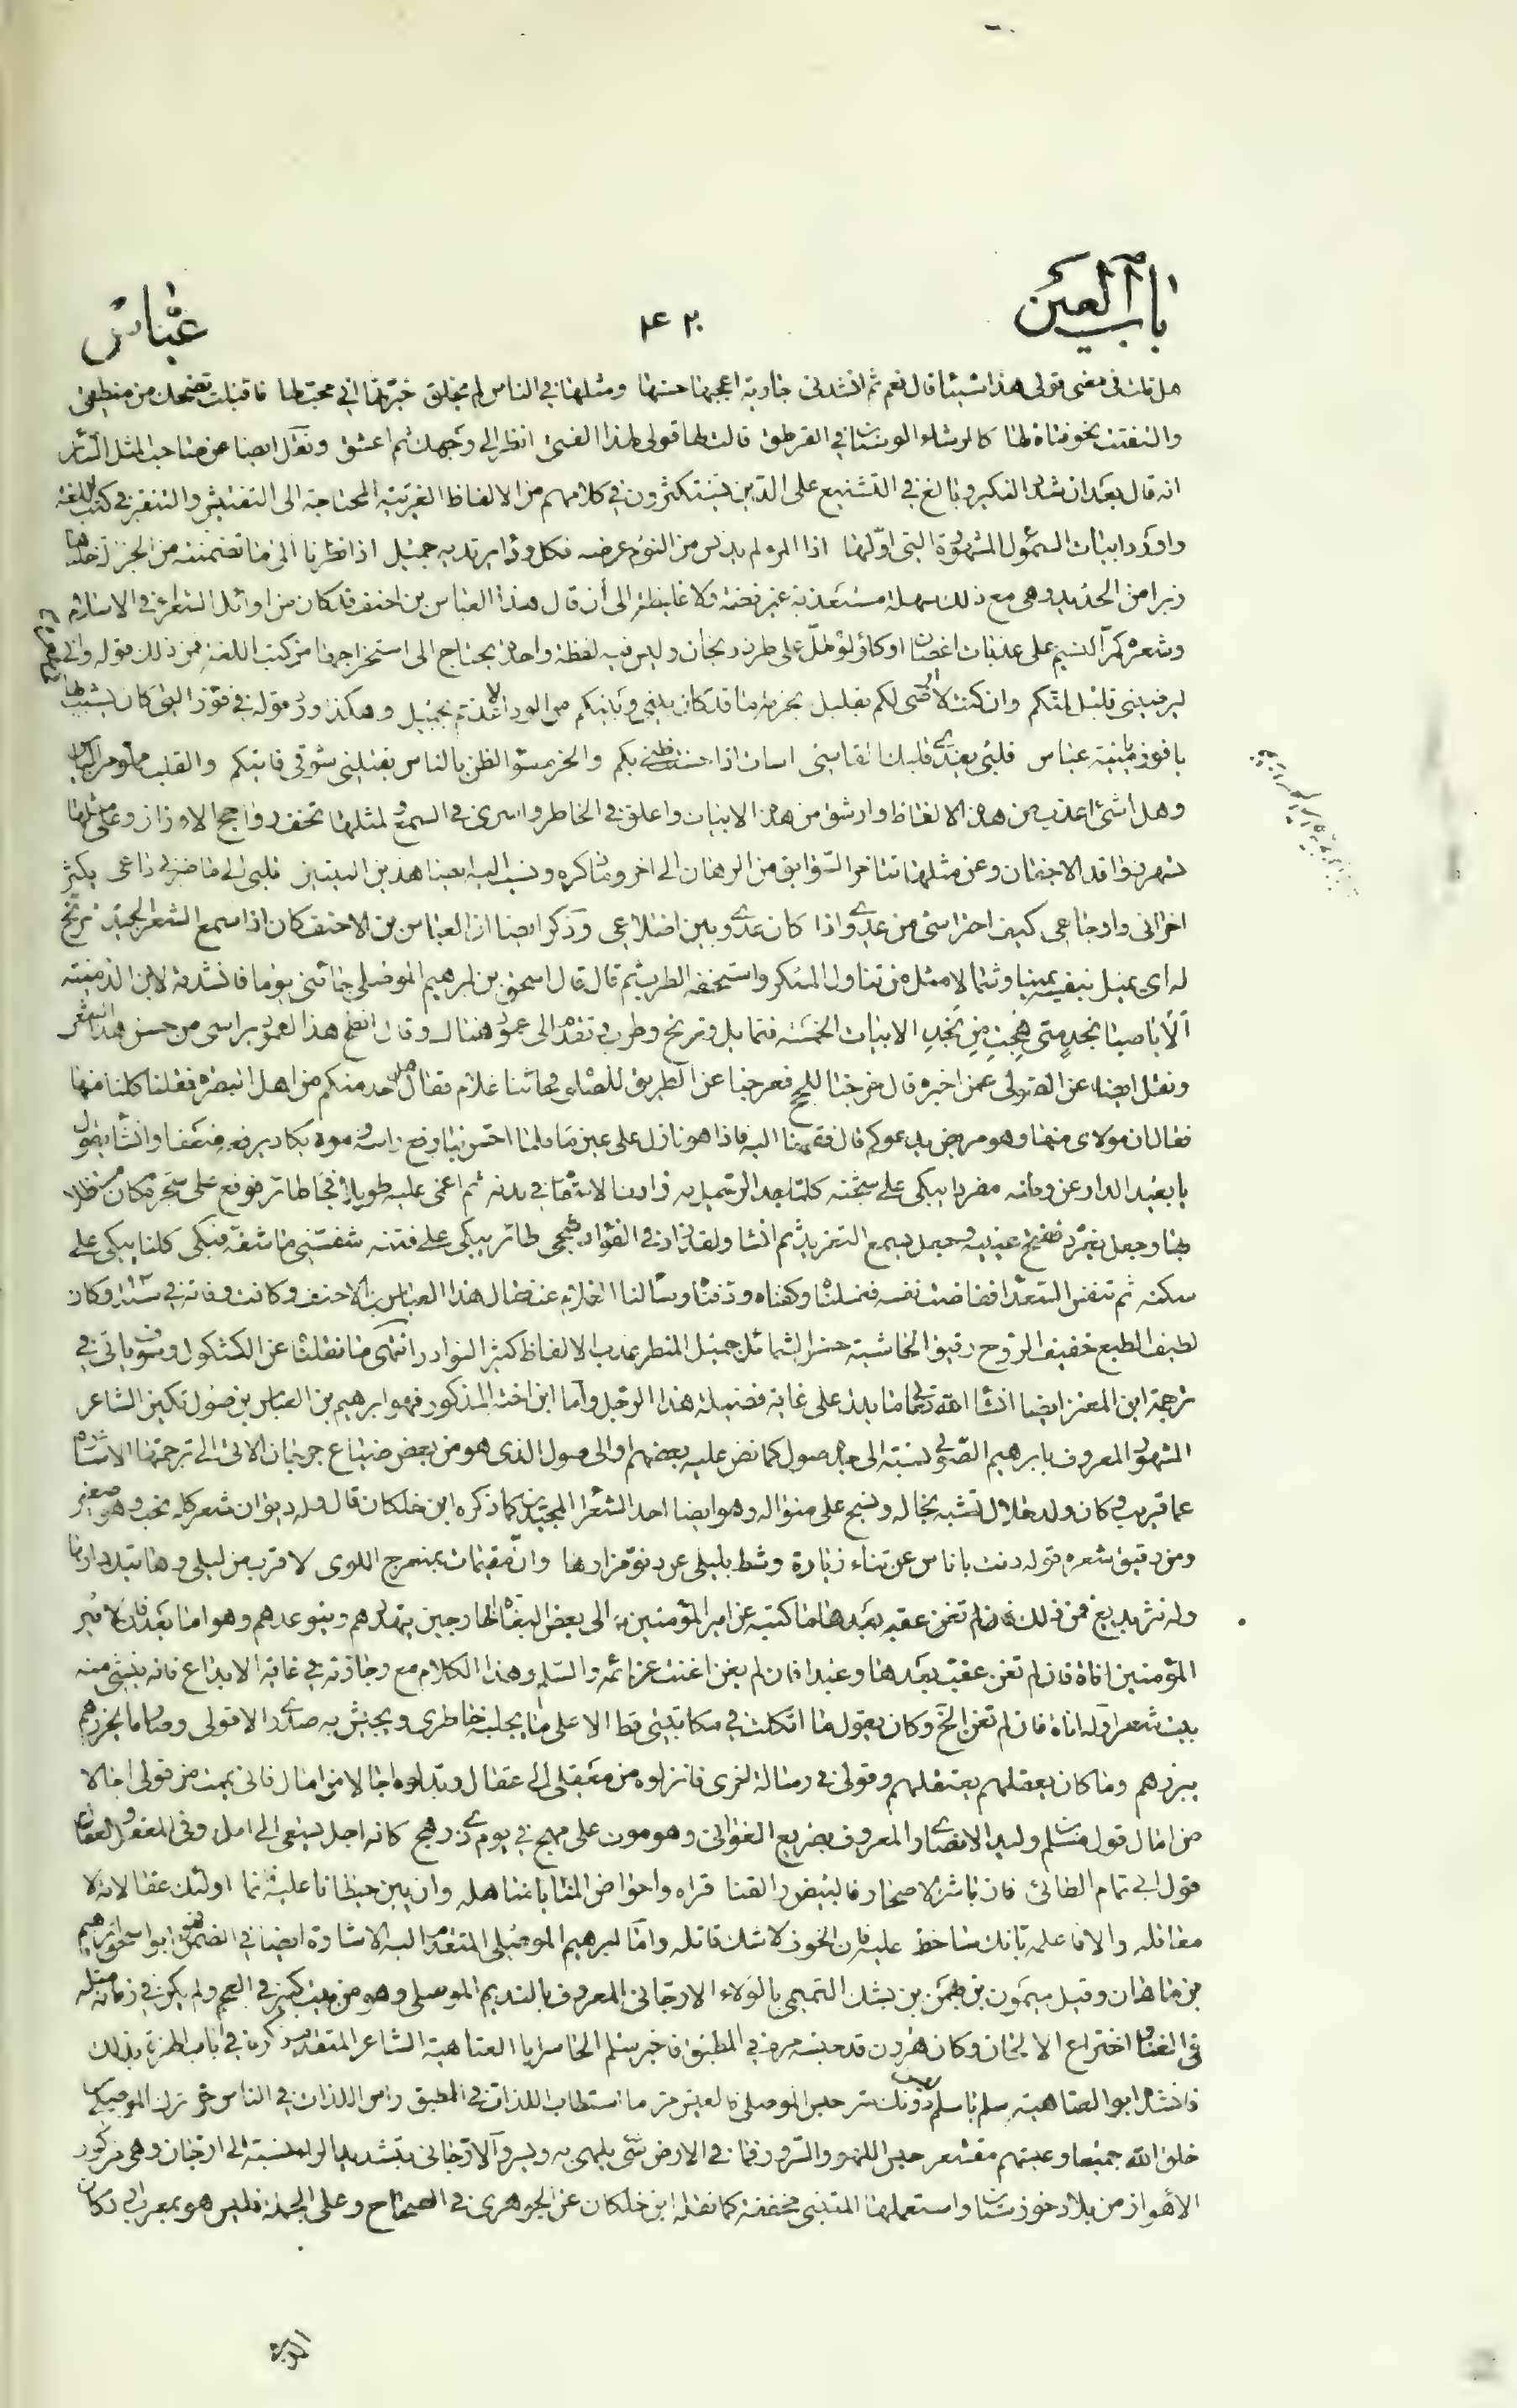 باب العين
۴۲۰
عباس
هل قلت فى معنى قولى هذا شيئا قال نعم ثم انشدنى جارية اعجبها حسنها ومثلها فى الناس لم يخلق خبرتها انى محب لها فاقبلت تضحك من منطقى
والتفتت نحو فتاة لها كالرشاء الوسنان فى القرطق قالت لها قولى لهذا الفتى انظر الى وجهك ثم اعشق ونقل ايضا عن صاحب المثل السائر
انه قال بعد ان شدد النكير وبالغ فى التشنيع على الذين يستكثرون فى كلامهم من الالفاظ الغريبة المحتاجة الى التفتيش والتنقير فى كتب اللغة
واورد ابيات السموأل المشهورة التى اولها اذا المرء لم يدنس من اللؤم عرضه فكل رداء يرتديه جميل اذا نظرنا الى ما تضمنته من الجزالة خلناها
زبرا من الحديد وهى مع ذلك سهلة مستعذبة غير فظة ولا غليظة الى أن قال هذا العباس بن احنف قد كان من اوائل الشعراء فى الاسلام
وشعره كمر النسيم على عذبات اغصان او كلؤلؤ طل على طرر ريحان وليس فيه لفظة واحدة يحتاج الى استخراجها من كتب اللغة فمن ذلك قوله وانى
ليرضينى قليل نوالكم وان كنت لا ارضى لكم بقليل بحرمة ما قد كان بينى وبينكم من الود الا عدتم بجميل وهكذا ورد قوله فى فوز التى كان يشبب بها
يا فوز يا منية عباس قلبى يفدى قلبك القاسى اسات اذ احسنت ظنى بكم والحزم سوء الظن بالناس يقلقنى شوقى فاتيكم والقلب مملوء من الياس
وهل أشئ اعذب من هذه الالفاظ وارشق من هذه الابيات واعلق فى الخاطر واسرى فى السمع ولمثلها تخف رواجح الاوزان وعلى مثلها
تسهر رواقد الاجفان وعن مثلها تتاخر السوابق من الرهان الى اخر ما ذكره ونسب اليه ايضا هذين البيتين قلبى الى ما ضرنى داعى يكثر
احزانى واوجاعى كيف احتراسى من عدوى اذا كان عدوى بين اضلاعى وذكر ايضا ان العباس بن الاحنف كان اذا سمع الشعر الجيد ترنح
له اى يميل بنفسه يمينا وشمالا مثل من تناول المسكر واستخفه الطرب ثم قال قال اسحق بن ابرهيم الموصلى جائنى يوما فانشدته لابن الدمينة
ألا يا صبا نجد متى هجت من نجد الابيات الخمسة فتمايل وترنح وطرب وتقدم الى عمود هناك وقال انطح هذا العمود براسى من حسن هذا الشعر
ونقل ايضا عن الصولى عمن اخبره قال خرجنا للحج فعرجنا عن الطريق للصلوة فجائنا غلام فقال هل احد منكم من اهل البصرة فقلنا كلنا منها
فقال ان مولاى منها وهو مريض يدعوكم قال فقمنا اليه فاذا هو نازل على عين ماء فلما احس بنا رفع راسه وهو لا يكاد يرفعه ضعفا وانشأ يقول
يا بعيد الدار عن وطنه مفردا يبكى على شجنه كلما جد الرحيل به زادت الاسقام فى بدنه ثم اغمى عليه طويلا فجاء طائر فوقع على شجرة كان مستظلا
بها وجعل يغرد ففتح عينيه وجعل يسمع التغريد ثم انشا ولقد زاد فى الفؤاد شجى طائر يبكى على فننه شفنى ما شفه فبكى كلنا يبكى على
سكنه ثم تنفس الصعداء ففاضت نفسه فغسلناه وكفناه ودفناه وسألنا الغلام عنه فقال هذا العباس بن الاحنف وكانت وفاته فى سنة وكان
لطيف الطبع خفيف الروح رقيق الحاشية حسن الشمائل جميل المنظر عذب الالفاظ كثير النوادر انتهى ما نقلناه عن الكشكول وسوف ياتى فى
ترجمة ابن المعتز ايضا انشاء الله تعالى ما يدل على غاية فضيلة هذا الرجل واما ابن اخته المذكور فهو ابرهيم بن العباس بن صول تكين الشاعر
المشهور المعروف بابرهيم الصولى نسبته الى جده صول كما نص عليه بعضهم او الى صول الذى هو من بعض ضياع جرجان الاتى الى ترجمتها الاشارة
عما قريب وكان ولد خلال لتشبه بخاله ونسج على منواله وهو ايضا احد الشعراء المجيدين كما ذكره ابن خلكان قال وله ديوان شعر كله نخب وهو صغير
ومن دقيق شعره قوله دنت باناس عن تناء زيارة وشط بليلى عن دنو مزارها وان مقيمات بمنعرج اللوى لاقرب من ليلى وهاتيك دارها
وله نثر بديع فمن ذلك ما كتبه عن امير المؤمنين الى بعض البغاة الخارجين يتهددهم ويتوعدهم وهو اما بعد فان لامير
المؤمنين اناة فان لم تغن عقب بعدها وعيدا فان لم يغن اغنت عزائمه والسلم وهذا الكلام مع وجازته فى غاية الابداع فانه ينشى منه
بيت شعر اوله اناة فان لم تغن الخ وكان يقول ما اتكلت فى مكاتبتى قط الا على ما يجلبه خاطرى ويجيش به صدرى الا قولى وصار ما يحرزهم
يبرزهم وما كان يعقلهم يعتقلهم وقولى فى رسالة اخرى فانزلوه من معقل الى عقال وبدلوه اجالا من امال فانى الممت من قولى اجالا
من امال قول مسلم وليد الانصارى المعروف بصريع الغوانى وهو موت على مهج فى يوم ذى رهج كانه اجل يسعى الى امل وفى المعقل والعقال
قول ابى تمام الطائى فان باشر الاصحار فالبيض والقنا قراه واحواض المنايا مناهله وان يبن حيطانا عليه فانما اولئك عقالاته لا
معاقله والا فاعلمه بانك ساخط عليه فان الخوف لا شك قاتله واما ابرهيم الموصلى المتقدم اليه الاشارة ايضا فى الضمن فهو ابو اسحق ابرهيم
بن ماهان وقيل ميمون بن بهمن بن بشك التميمى بالولاء الارجانى المعروف بالنديم الموصلى وهو من بيت كبير فى العجم ولم يكن فى زمانه مثله
فى الغناء واختراع الالحان وكان هرون قد حبسه مرة فى المطبق فاخبر سلم الخاسر ابا العتاهية الشاعر المتقدم ذكره فى باب الهمزة بذلك
فانشد ابو العتاهية سلم يا سلم ليس دونك سر حبس الموصلى فالعيش مر ما استطاب اللذات فى المطبق راس اللذات فى الناس حر ترك الموصلى
خلق الله جميعا وعيشهم مقشعر حبس اللهو والسرور فما فى الارض شئ يلهى به ويسر والارجانى بتشديد الراء نسبة الى ارجان وهى من كور
الأهواز من بلاد خوزستان واستعملها المتنبى مخففة كما نقله ابن خلكان عن الجوهرى فى الصحاح وعلى الجملة فليس هو بمعرب